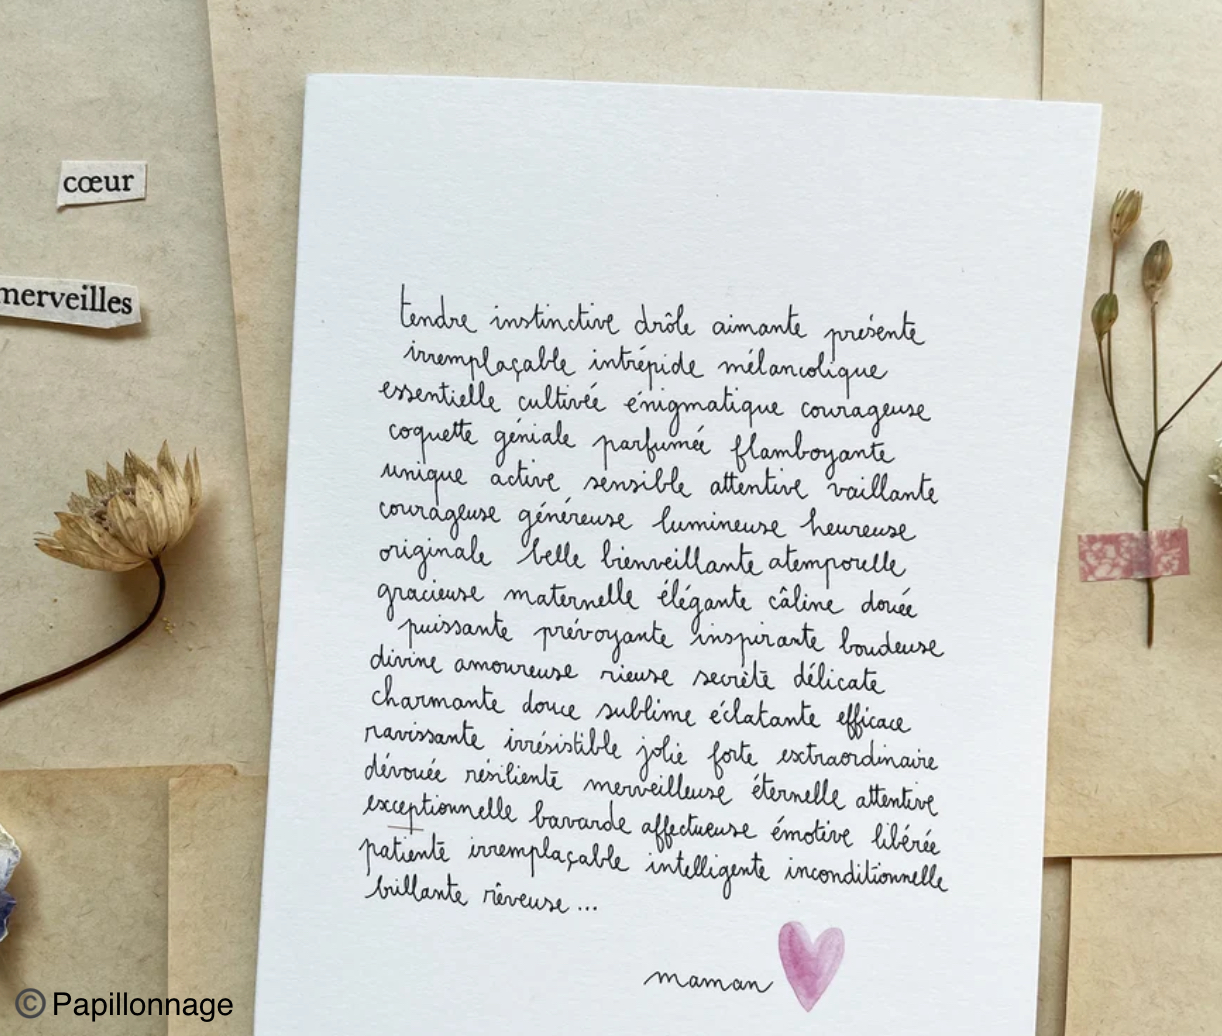 cœur
merveilles
tendre instinctive drôle aimante présente
irremplaçable intrépide mélancolique
essentielle cultivée énigmatique courageuse
coquette géniale parfumée flamboyante
unique active sensible attentive vaillante
courageuse généreuse lumineuse heureuse
originale belle bienveillante atemporelle
gracieuse maternelle élégante câline douée
puissante prévoyante inspirante boudeuse
divine amoureuse rieuse secrète délicate
charmante douce sublime éclatante efficace
ravissante irrésistible jolie forte extraordinaire
dévouée résiliente merveilleuse éternelle attentive
exceptionnelle bavarde affectueuse émotive libérée
patiente irremplaçable intelligente inconditionnelle
brillante rêveuse ...
maman
© Papillonnage